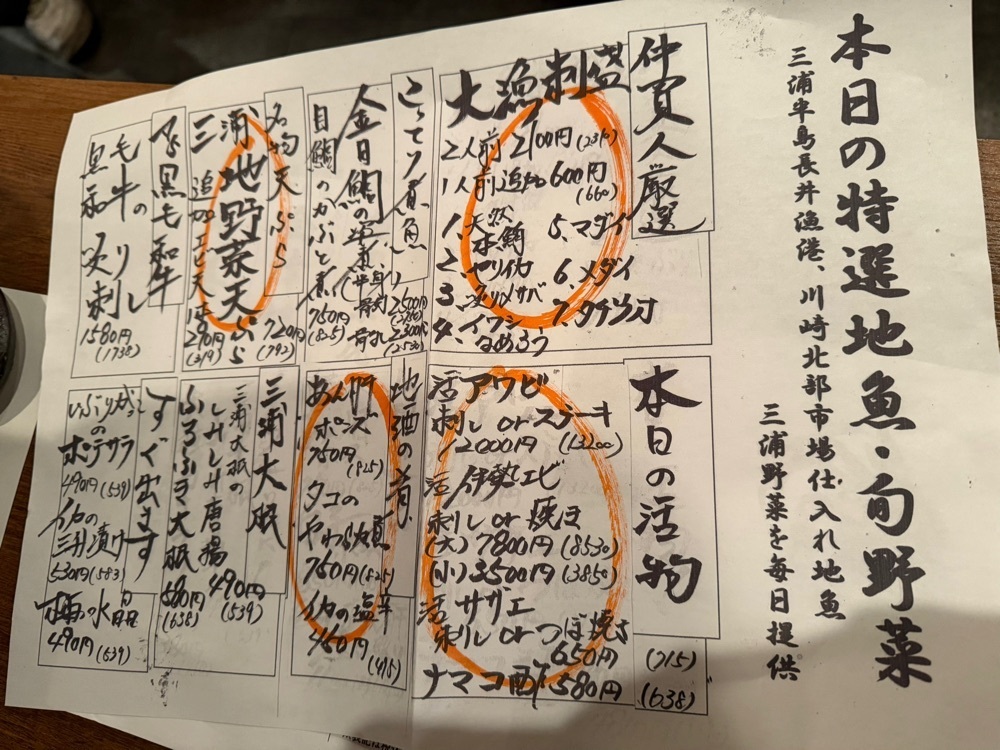 本日の特選地魚・旬野菜
三浦半島長井漁港、川崎北部市場仕入れ地魚
三浦野菜を毎日提供
仲買人厳選
大漁刺盛
2人前 2100円(2310)
1人前追加 600円(660)
1、天然本鮪
2、ヤリイカ
3、〆サバ
4、イワシなめろう
5、マダイ
6、メダイ
7、タチウオ
こってり煮魚
金目鯛の煮
半身
骨なし 2300円(2530)
目鯛のかぶと煮 750円(825)
名物天ぷら
三浦地野菜天ぷら 720円(792)
追加エビ天は 290円(319)
黒毛和牛
黒毛和牛の炙り刺し
1580円(1738)
本日の活物
活アワビ
刺し or ステーキ
12000円(13200)
活伊勢エビ
刺し or 焼き
(大) 7800円(8530)
(小) 3500円(3850)
活サザエ
刺し or つぼ焼き
650円(715)
ナマコ酢 580円(638)
地酒の肴
あん肝ポンズ
750円(825)
タコのやわらか煮
750円(825)
イカの塩辛
450円(495)
三浦大根
三浦大根のしみしみ唐揚 490円(539)
ふろふき大根 580円(638)
すぐ出ます
いぶりがっこのポテサラ
490円(539)
イカの三升漬け
530円(583)
梅の水晶
490円(539)